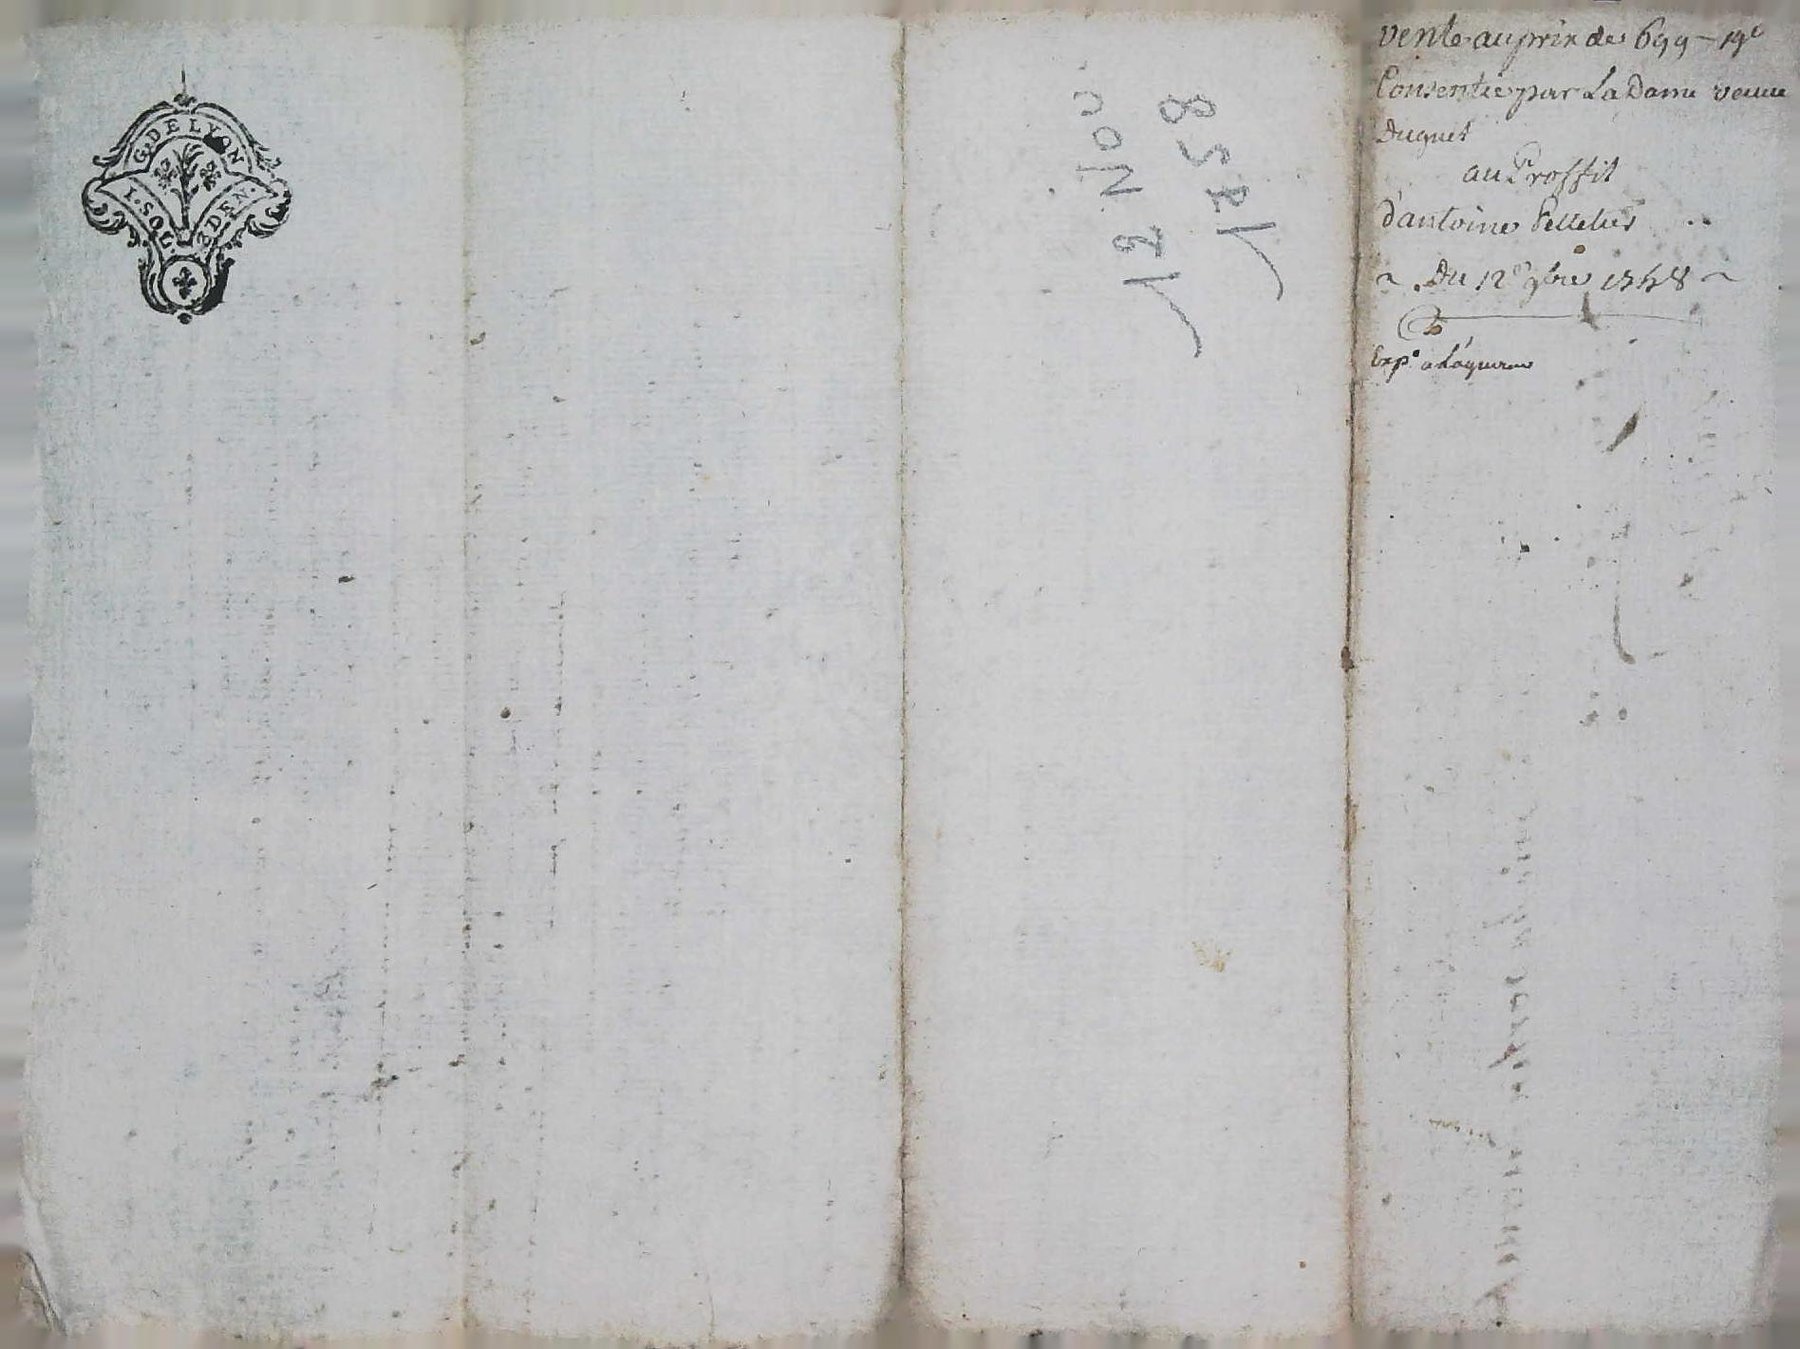 G. DE LYON
I. SOL DEN.
12 Nov
1758
vente au prix de 699 - 19ˢ
Consentie par La Dame veuve
Duguet
au Proffit
d'antoine Pelletier
Du 12ᵉ 9bre 1758
Expᵒ a Laquereur